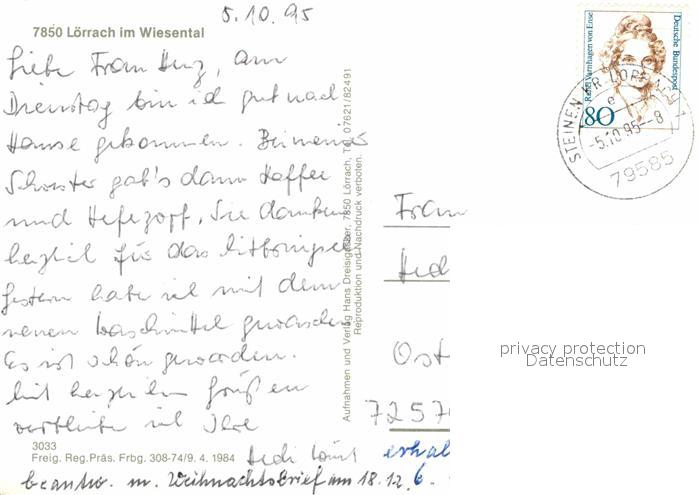 5.10.95
7850 Lörrach im Wiesental
Liebe Frau Herz, am
Dienstag bin ich gut nach
Hause gekommen. Bei meiner
Schwester gab's dann Kaffee
und Hefezopf. Sie danken
herzlich für das
gestern habe ich mit dem
neuen Waschmittel gewaschen
Es ist schön geworden.
Mit herzlichen Grüßen
verbleibe ich Ihre
Hedi
3033
Freig. Reg.Präs. Frbg. 308-74/9. 4. 1984
beantw. m. Weihnachtsbrief am 18.12.
Aufnahmen und Verlag Hans Dreisigacker, 7850 Lörrach, Tel. 07621/82491
Reproduktion und Nachdruck verboten.
Frau
Hedi
Ost
7257
erhal
6.
Rahel Varnhagen von Ense
Deutsche Bundespost
80
STEINEN KR LÖRRACH 1
e
-5.10.95--8
79585
privacy protection
Datenschutz